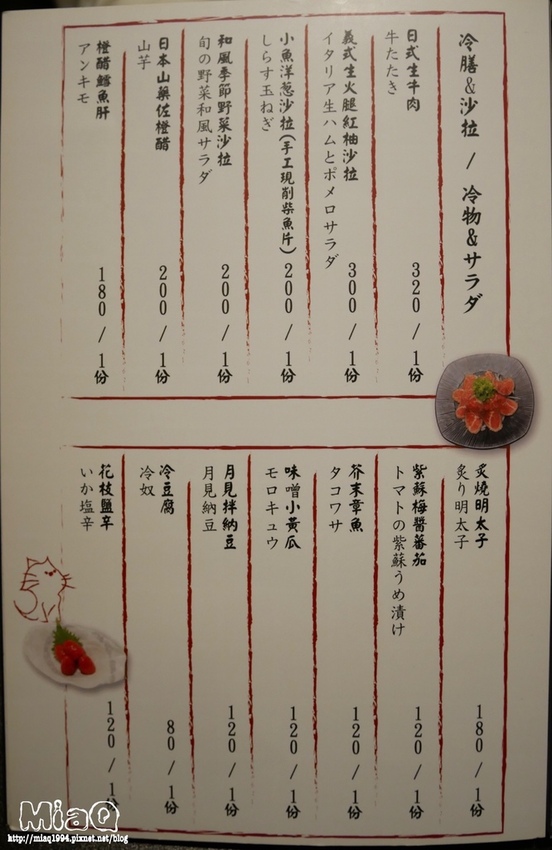 冷膳&沙拉 / 冷物&サラダ
日式生牛肉
牛たたき
320 / 1份
義式生火腿紅柚沙拉
イタリア生ハムとポメロサラダ
300 / 1份
小魚洋葱沙拉(手工現削柴魚片)
しらす玉ねぎ
200 / 1份
和風季節野菜沙拉
旬の野菜和風サラダ
200 / 1份
日本山藥佐橙醋
山芋
200 / 1份
橙醋鱈魚肝
アンキモ
180 / 1份
炙燒明太子
炙り明太子
180 / 1份
紫蘇梅醬蕃茄
トマトの紫蘇うめ漬け
120 / 1份
芥末章魚
タコワサ
120 / 1份
味噌小黃瓜
モロキュウ
120 / 1份
月見拌納豆
月見納豆
120 / 1份
冷豆腐
冷奴
80 / 1份
花枝鹽辛
いか塩辛
120 / 1份
MiaQ
http://miaq1994.pixnet.net/blog